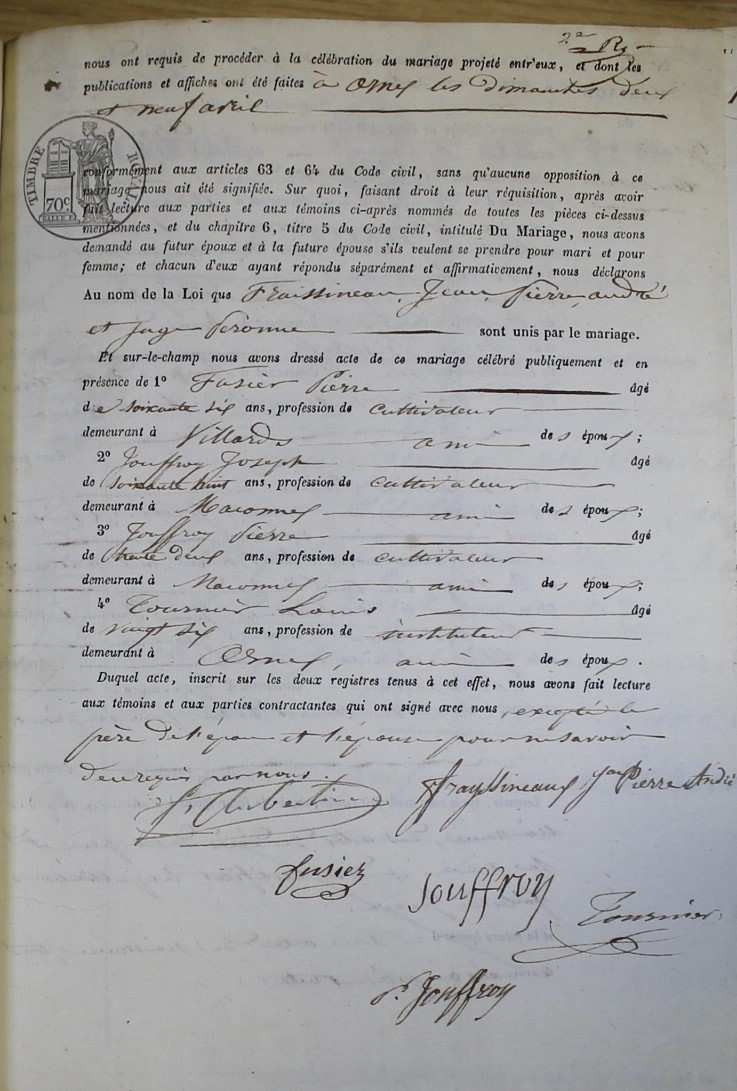 2e Rg
nous ont requis de procéder à la célébration du mariage projeté entr'eux, et dont les
publications et affiches ont été faites à Ornex les Dimanches deux
et neuf avril
TIMBRE ROYAL
70c
conformément aux articles 63 et 64 du Code civil, sans qu'aucune opposition à ce
mariage nous ait été signifiée. Sur quoi, faisant droit à leur réquisition, après avoir
fait lecture aux parties et aux témoins ci-après nommés de toutes les pièces ci-dessus
mentionnées, et du chapitre 6, titre 5 du Code civil, intitulé Du Mariage, nous avons
demandé au futur époux et à la future épouse s'ils veulent se prendre pour mari et pour
femme; et chacun d'eux ayant répondu séparément et affirmativement, nous déclarons
Au nom de la Loi que Fraissineau, Jean, Pierre, andré
et Juge Peronne sont unis par le mariage.
Et sur-le-champ nous avons dressé acte de ce mariage célébré publiquement et en
présence de 1° Fusier Pierre âgé
de soixante six ans, profession de cultivateur
demeurant à Villards ami des époux;
2° Jouffroy Joseph âgé
de soixante huit ans, profession de cultivateur
demeurant à Maconnex ami des époux;
3° Jouffroy Pierre âgé
de trente deux ans, profession de cultivateur
demeurant à Maconnex ami des époux;
4° Tournier Louis âgé
de vingt six ans, profession de instituteur
demeurant à Ornex, ami des époux.
Duquel acte, inscrit sur les deux registres tenus à cet effet, nous avons fait lecture
aux témoins et aux parties contractantes qui ont signé avec nous, excepté le
père de l'époux et l'épouse pour ne savoir
de ce requis par nous.
Frayssineaux, Jean Pierre André
fusiez
Jouffroy
Tournier
P. Jouffroy